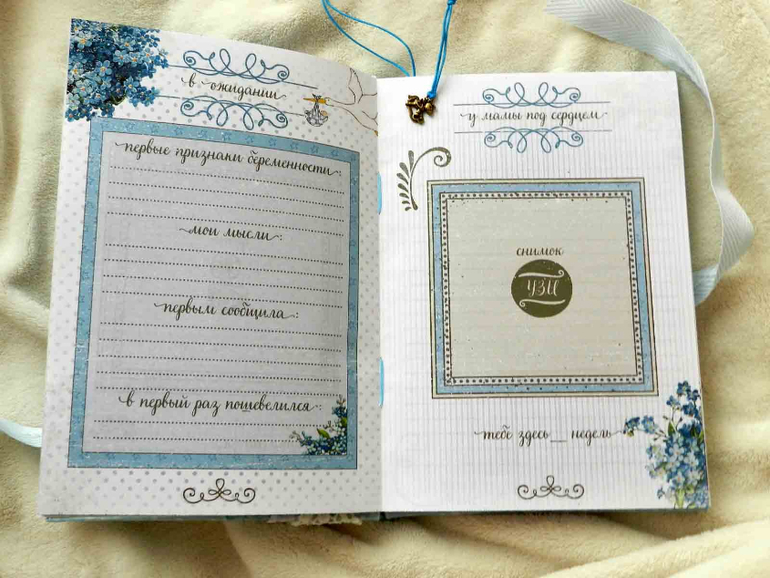 в ожидании
первые признаки беременности:
мои мысли:
первым сообщила:
в первый раз пошевелился:
у мамы под сердцем
снимок
УЗИ
тебе здесь__ недель